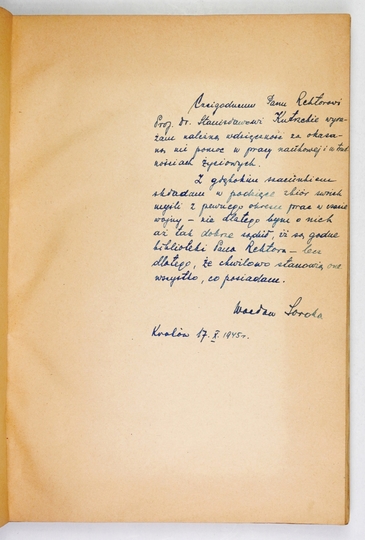 Czcigodnemu Panu Rektorowi
Prof. dr. Stanisławowi Kutrzebie wyra-
żam należną wdzięczność za okaza-
ną mi pomoc w pracy naukowej i w trud-
nościach życiowych.
Z głębokim szacunkiem
składam w podzięce zbiór swoich
myśli z pewnego okresu prac w czasie
wojny – nie dlatego bym o nich
aż tak dobrze sądził, iż są godne
biblioteki Pana Rektora – lecz
dlatego, że chwilowo stanowią one
wszystko, co posiadam.
Wacław Soroka
Kraków 17. X. 1945 r.